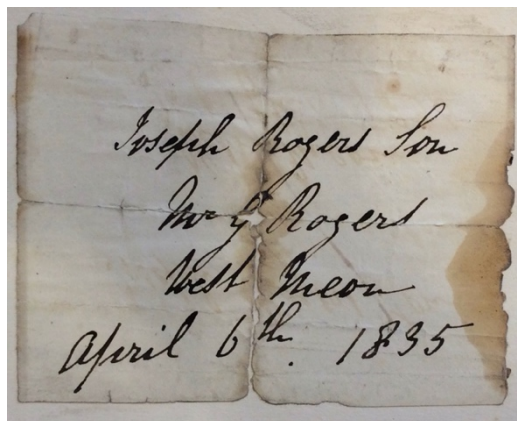 Joseph Rogers Son
Mr G Rogers
West Meon
April 6th. 1835